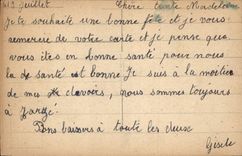 Juillet Chère tante Madeleine
Je te souhaite une bonne fête et je vous
remercie de votre carte et je pense que
vous êtes en bonne santé pour nous
la de santé est bonne Je suis à la moitier
de mes devoirs, nous sommes toujours
à Jarzé
Bons baisers à toute les deux
Gisèle